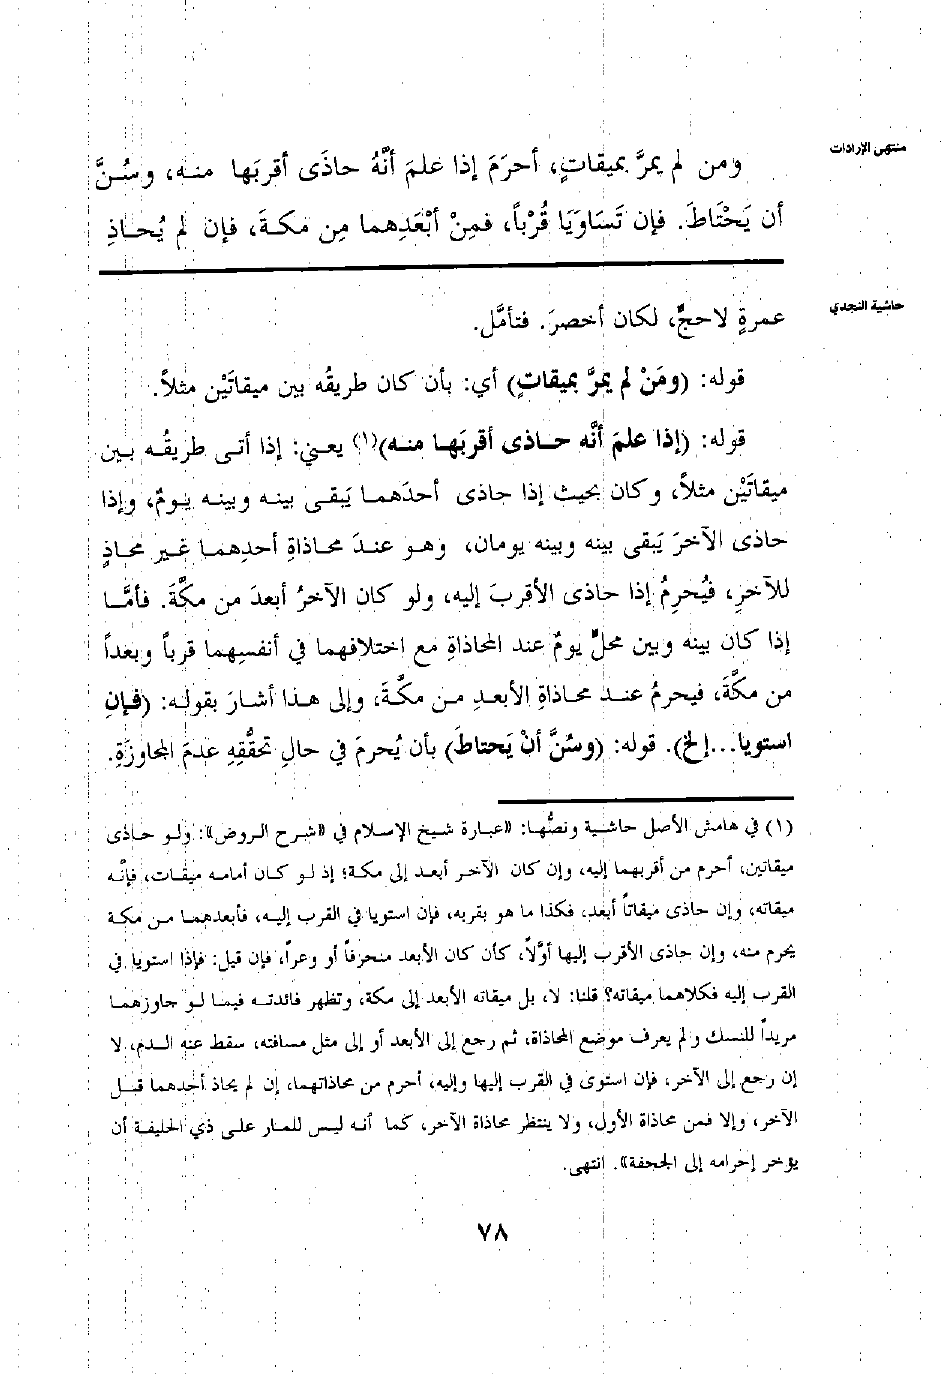 منتهى الإرادات
ومن لم يمرَّ بميقاتٍ، أحرَمَ إذا علمَ أنَّهُ حاذَى أقربَها منه، وسُنَّ
أن يَحْتَاطَ. فإن تَسَاوَيَا قُرْباً، فمِنْ أبْعَدِهما مِن مكةَ، فإن لم يُحاذِ
حاشية النجدي
عمرةٍ لاحجٍّ، لكان أخصرَ. فتأمَّل.
قوله: (ومَنْ لم يمرَّ بميقاتٍ) أي: بأن كان طريقُه بين ميقاتَيْن مثلاً.
قوله: (إذا علمَ أنَّه حاذى أقربَها منه)(١) يعني: إذا أتى طريقُه بين
ميقاتَيْن مثلاً، وكان بحيث إذا حاذى أحدَهما يَبقى بينه وبينه يومٌ، وإذا
حاذى الآخرَ يَبقى بينه وبينه يومان، وهو عندَ محاذاةِ أحدِهما غير محاذٍ
للآخرِ، فيُحرِمُ إذا حاذى الأقربَ إليه، ولو كان الآخرُ أبعدَ من مكَّةَ. فأمَّا
إذا كان بينه وبين محلٍّ يومٌ عند المحاذاةِ مع اختلافهما في أنفسِهما قرباً وبعداً
من مكَّةَ، فيحرمُ عند محاذاةِ الأبعدِ من مكَّةَ، وإلى هذا أشارَ بقوله: (فإنِ
استويا...إلخ). قوله: (وسُنَّ أنْ يَحتاطَ) بأن يُحرمَ في حالِ تحقُّقِهِ عدمَ المجاوزَةِ.
(١) في هامش الأصل حاشية ونصُّها: «عبارة شيخ الإسلام في «شرح الروض»: ولو حاذى
ميقاتين، أحرم من أقربهما إليه، وإن كان الآخر أبعد إلى مكة؛ إذ لو كان أمامه ميقات، فإنَّه
ميقاته، وإن حاذى ميقاتاً أبعد، فكذا ما هو بقربه، فإن استويا في القرب إليه، فأبعدهما من مكة
يحرم منه، وإن حاذى الأقرب إليها أوَّلاً، كأن كان الأبعد منحرفاً أو وعراً، فإن قيل: فإذا استويا في
القرب إليه فكلاهما ميقاته؟ قلنا: لا، بل ميقاته الأبعد إلى مكة، وتظهر فائدته فيما لو جاوزهما
مريداً للنسك ولم يعرف موضع المحاذاة، ثم رجع إلى الأبعد أو إلى مثل مسافته، سقط عنه الدم، لا
إن رجع إلى الآخر، فإن استوى في القرب إليها وإليه، أحرم من محاذاتهما، إن لم يحاذ أحدهما قبل
الآخر، وإلا فمن محاذاة الأول، ولا ينتظر محاذاة الآخر، كما أنه ليس للمار على ذي الحليفة أن
يؤخر إحرامه إلى الجحفة». انتهى.
٧٨